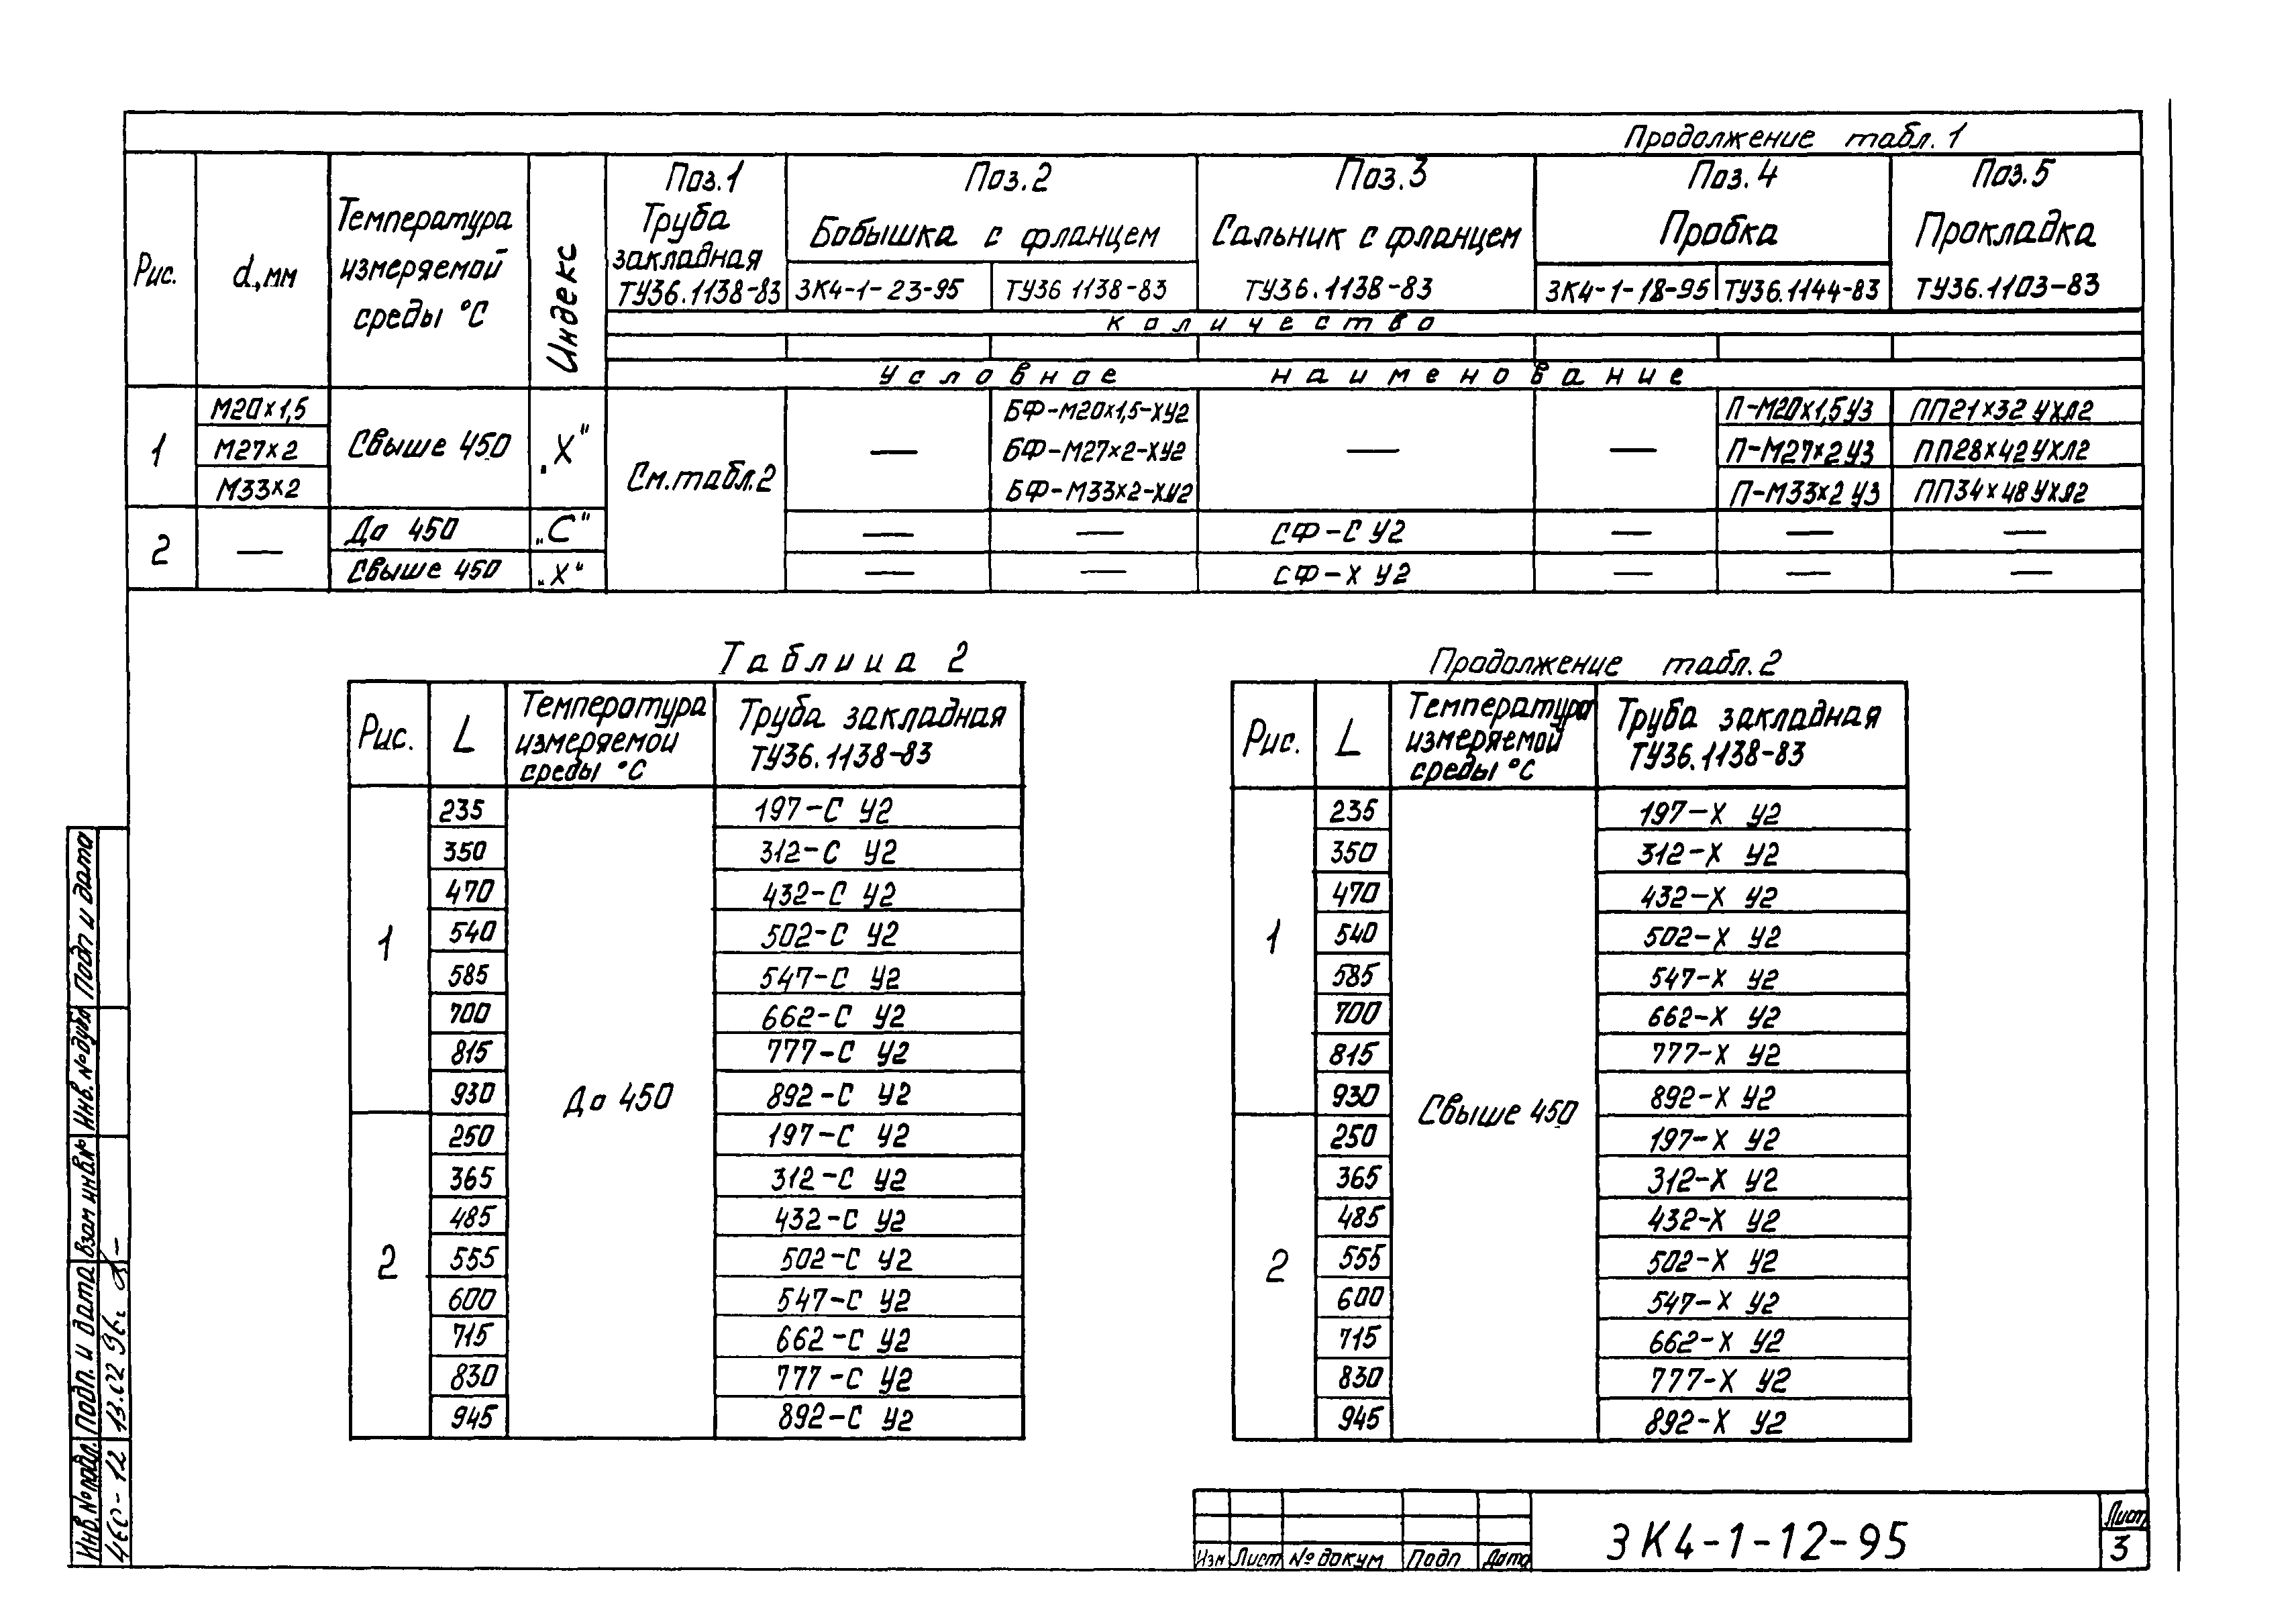 Продолжение табл. 1
Рис.
d, мм
Температура измеряемой среды °С
Индекс
Поз.1 Труба закладная ТУ36.1138-83
Поз.2 Бобышка с фланцем
ЗК4-1-23-95
ТУ36 1138-83
Поз.3 Сальник с фланцем ТУ36.1138-83
Поз.4 Пробка
ЗК4-1-18-95
ТУ36.1144-83
Поз.5 Прокладка ТУ36.1103-83
Количество
Условное наименование
1
М20×1,5
М27×2
М33×2
Свыше 450
„Х"
См.табл.2
—
БФ-М20×1,5-ХУ2
БФ-М27×2-ХУ2
БФ-М33×2-ХУ2
—
—
П-М20×1,5У3
П-М27×2У3
П-М33×2 У3
ПП21×32 УХЛ2
ПП28×42УХЛ2
ПП34×48УХЛ2
2
—
До 450 „С" — — СФ-С У2 — — —
Свыше 450 „Х" — — СФ-Х У2 — — —
Таблица 2
Рис. L Температура измеряемой среды °С Труба закладная ТУ36.1138-83
1
До 450
235 197-С У2
350 312-С У2
470 432-С У2
540 502-С У2
585 547-С У2
700 662-С У2
815 777-С У2
930 892-С У2
2
250 197-С У2
365 312-С У2
485 432-С У2
555 502-С У2
600 547-С У2
715 662-С У2
830 777-С У2
945 892-С У2
Продолжение табл.2
Рис. L Температура измеряемой среды °С Труба закладная ТУ36.1138-83
1
Свыше 450
235 197-Х У2
350 312-Х У2
470 432-Х У2
540 502-Х У2
585 547-Х У2
700 662-Х У2
815 777-Х У2
930 892-Х У2
2
250 197-Х У2
365 312-Х У2
485 432-Х У2
555 502-Х У2
600 547-Х У2
715 662-Х У2
830 777-Х У2
945 892-Х У2
Подп и дата
Инв.№дубл
Взам инв№
Подп. и дата
13.02 96г.
Инв.№подл.
460-12
Изм Лист № докум Подп Дата
ЗК4-1-12-95
Лист
3